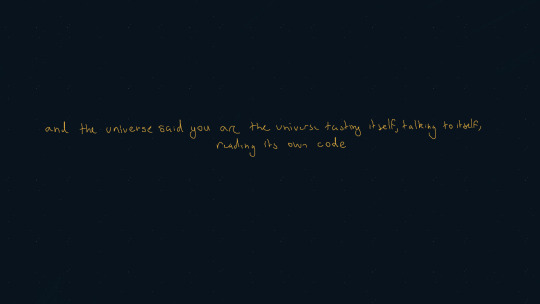 and the universe said you are the universe tasting itself, talking to itself,
reading its own code